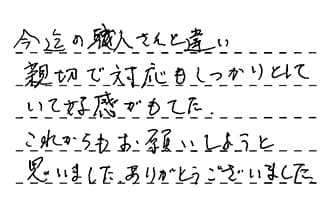 今迄の職人さんと違い
親切で対応もしっかりとして
いて好感がもてた.
これからもお願いしようと
思いました.ありがとうございました